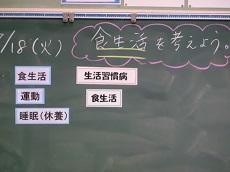 /18(火)
食生活を考えよう。
食生活 生活習慣病
運動 食生活
睡眠(休養)